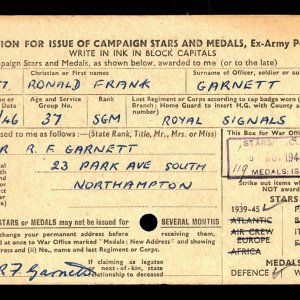 TION FOR ISSUE OF CAMPAIGN STARS AND MEDALS, Ex-Army Pe
WRITE IN INK IN BLOCK CAPITALS
paign Stars and Medals, as shown below, awarded to me (or to the late)
Christian or First names
Surname of Officer, soldier or au
RONALD FRANK
GARNETT
Age and Service Group No.
Rank
Last Regiment or Corps according to cap badge worn (
Branch; Home Guard to insert H.G. with County and
/46
37
SGM
ROYAL SIGNALS
ssued to me as follows:— (State Rank, Title, Mr., Mrs. or Miss)
This Box for War Offi
R R. F. GARNETT
STARS
194
23 PARK AVE SOUTH
119
MEDALS: IS
NORTHAMPTON
Strike out items
NOT a
STARS
1939-45
STARS or MEDALS may not be issued for SEVERAL MONTHS
ATLANTIC
permanent address before receiving them,
AIR CREW
ard at once to War Office marked "Medals: New Address" and showing
EUROPE
ress and (ii) No., name and last Regiment or Corps.
AFRICA
If claiming as legatee
next-of-kin, state
relationship to deceased
MEDALS
R F Garnett
DEFENCE
WA